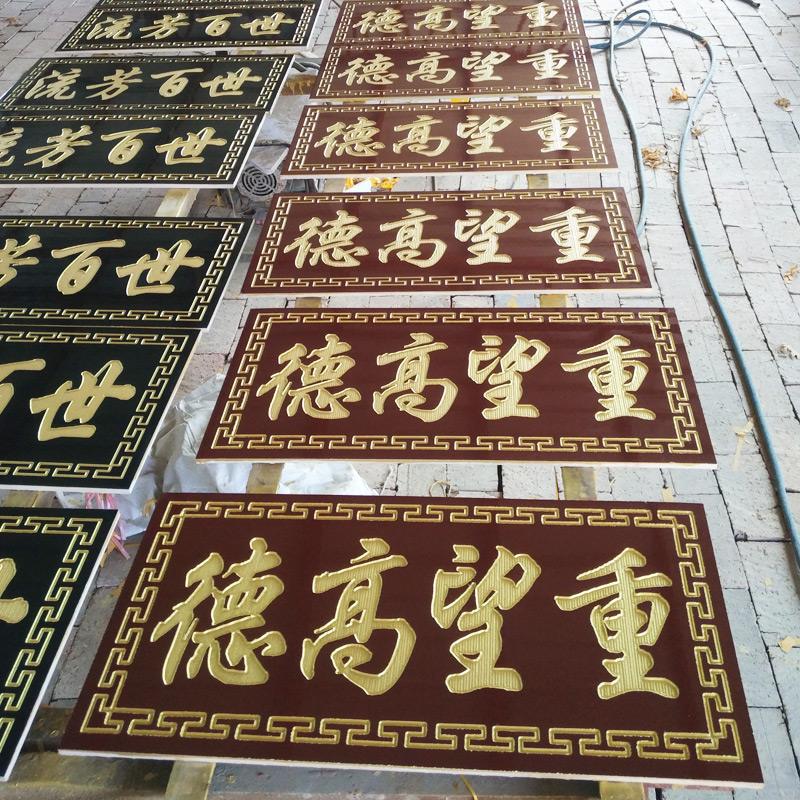 流芳百世
德高望重
流芳百世
德高望重
流芳百世
德高望重
芳百世
德高望重
百世
德高望重
德高望重